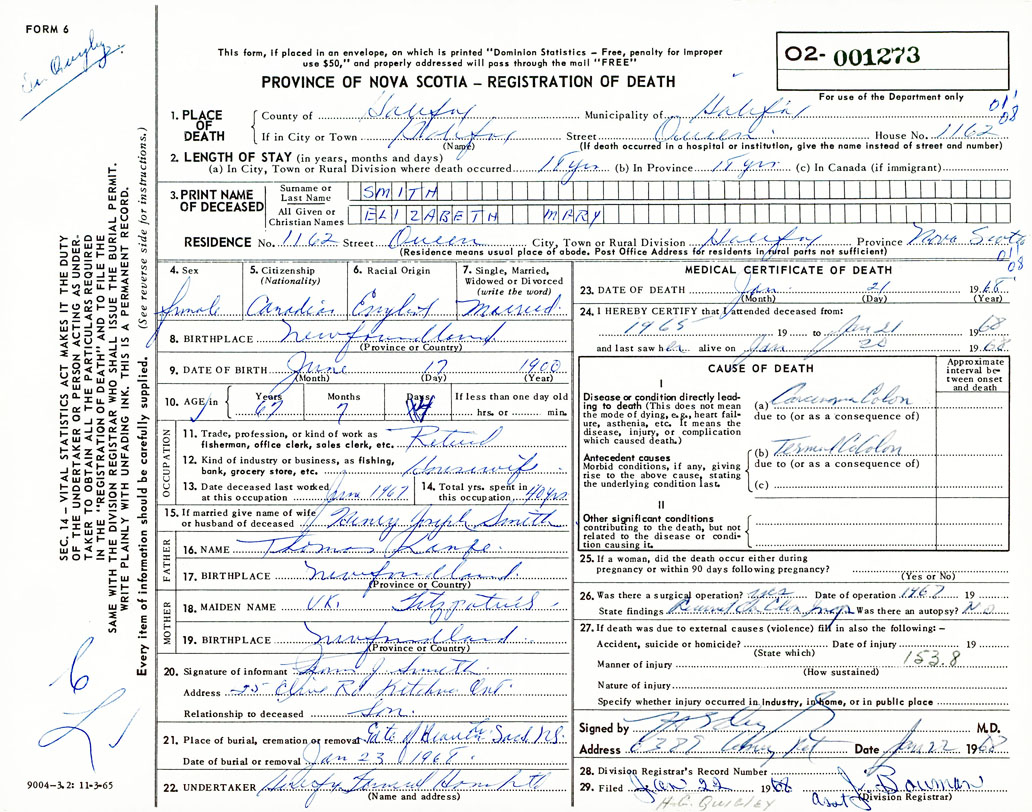 FORM 6
This form, if placed in an envelope, on which is printed "Dominion Statistics – Free, penalty for improper
use $50," and properly addressed will pass through the mail "FREE"
O2- 001273
For use of the Department only
PROVINCE OF NOVA SCOTIA – REGISTRATION OF DEATH
1. PLACE OF DEATH
County of Halifax Municipality of Halifax
If in City or Town Halifax Street Queen House No. 1162
(Name) (If death occurred in a hospital or institution, give the name instead of street and number)
2. LENGTH OF STAY (in years, months and days)
(a) In City, Town or Rural Division where death occurred 18 yrs (b) In Province 18 yrs (c) In Canada (if immigrant)
3. PRINT NAME OF DECEASED
Surname or Last Name SMITH
All Given or Christian Names ELIZABETH MARY
RESIDENCE No. 1162 Street Queen City, Town or Rural Division Halifax Province Nova Scotia
(Residence means usual place of abode. Post Office Address for residents in rural parts not sufficient)
4. Sex female
5. Citizenship (Nationality) Canadian
6. Racial Origin English
7. Single, Married, Widowed or Divorced (write the word) Married
8. BIRTHPLACE Newfoundland
(Province or Country)
9. DATE OF BIRTH June 17 1900
(Month) (Day) (Year)
10. AGE in Years 67 Months 7 Days 4 If less than one day old hrs. or min.
OCCUPATION
11. Trade, profession, or kind of work as fisherman, office clerk, sales clerk, etc. Retired
12. Kind of industry or business, as fishing, bank, grocery store, etc. Housewife
13. Date deceased last worked at this occupation 1967
14. Total yrs. spent in this occupation 40 yrs
15. If married give name of wife or husband of deceased Henry Joseph Smith
FATHER
16. NAME Thomas
17. BIRTHPLACE Newfoundland
(Province or Country)
MOTHER
18. MAIDEN NAME U.K. Fitzpatrick
19. BIRTHPLACE Newfoundland
(Province or Country)
20. Signature of informant J. Smith
Address 25 Clive Rd Kitchener Ont.
Relationship to deceased Son.
21. Place of burial, cremation or removal Gate of Heaven Sack N.S.
Date of burial or removal Jan 23 1968
22. UNDERTAKER Funeral Home Ltd
(Name and address)
MEDICAL CERTIFICATE OF DEATH
23. DATE OF DEATH Jan. 21 1968
(Month) (Day) (Year)
24. I HEREBY CERTIFY that I attended deceased from:
1965 19 to Jan 21 1968
and last saw her alive on Jan 20 1968
CAUSE OF DEATH
Approximate interval between onset and death
I
Disease or condition directly leading to death (This does not mean the mode of dying, e.g., heart failure, asthenia, etc. It means the disease, injury, or complication which caused death.)
(a) Carcinoma Colon
due to (or as a consequence of)
Antecedent causes
Morbid conditions, if any, giving rise to the above cause, stating the underlying condition last.
(b) Colon
due to (or as a consequence of)
(c)
II
Other significant conditions
contributing to the death, but not related to the disease or condition causing it.
25. If a woman, did the death occur either during pregnancy or within 90 days following pregnancy?
(Yes or No)
26. Was there a surgical operation? yes Date of operation 1967 19
State findings Was there an autopsy? No
27. If death was due to external causes (violence) fill in also the following: –
Accident, suicide or homicide? Date of injury 19
(State which)
Manner of injury 153.8
(How sustained)
Nature of injury
Specify whether injury occurred in Industry, in home, or in public place
Signed by M.D.
Address Date Jan 22 1968
28. Division Registrar's Record Number
29. Filed Jan 22 1968 J. Bowman
(Division Registrar)
H.C. QUIGLEY
SEC. 14 – VITAL STATISTICS ACT MAKES IT THE DUTY
OF THE UNDERTAKER OR PERSON ACTING AS UNDER-
TAKER TO OBTAIN ALL THE PARTICULARS REQUIRED
IN THE "REGISTRATION OF DEATH" AND TO FILE THE
SAME WITH THE DIVISION REGISTRAR WHO SHALL ISSUE THE BURIAL PERMIT.
WRITE PLAINLY WITH UNFADING INK. THIS IS A PERMANENT RECORD.
Every item of information should be carefully supplied. (See reverse side for instructions.)
9004-3.2: 11-3-65